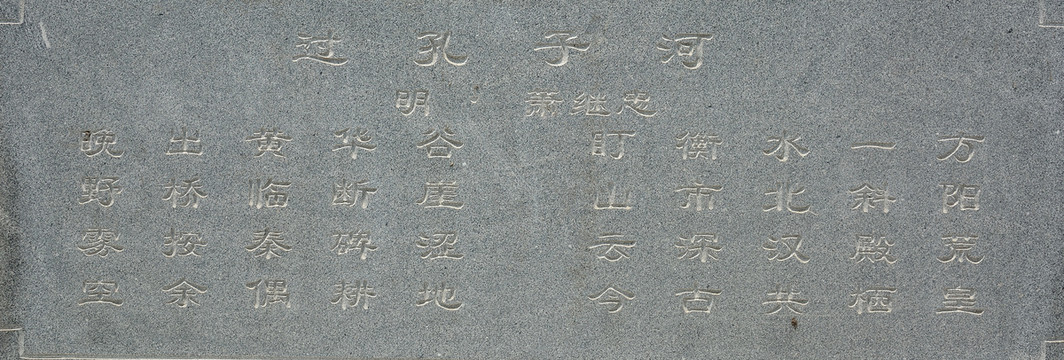 过孔子河
明·萧继忠
晚出黄华谷 盯衡水一方
野桥临断崖 山市北斜阳
雾按秦碑涩 云深汉殿荒
空余偶耕地 今古共栖皇